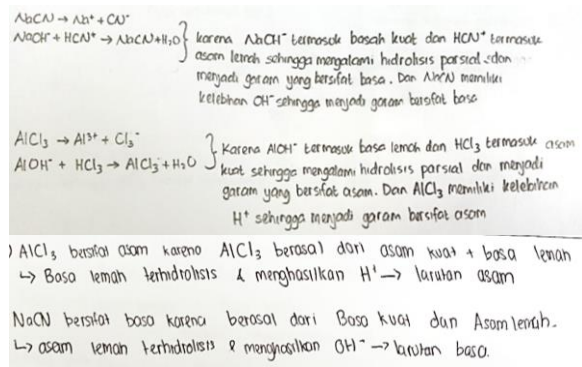 NaCN → Na⁺ + CN⁻
NaOH⁻ + HCN⁺ → NaCN + H₂O } karena NaOH⁻ termasuk basah kuat dan HCN⁺ termasuk
asam lemah sehingga mengalami hidrolisis parsial dan
menjadi garam yang bersifat basa. Dan NaCN memiliki
kelebihan OH⁻ sehingga menjadi garam bersifat basa
AlCl₃ → Al³⁺ + Cl₃⁻
AlOH⁻ + HCl₃ → AlCl₃ + H₂O } Karena AlOH⁻ termasuk basa lemah dan HCl₃ termasuk asam
kuat sehingga mengalami hidrolisis parsial dan menjadi
garam yang bersifat asam. Dan AlCl₃ memiliki kelebihan
H⁺ sehingga menjadi garam bersifat asam
) AlCl₃ bersifat asam karena AlCl₃ berasal dari asam kuat + basa lemah
↳ Basa lemah terhidrolisis & menghasilkan H⁺ → larutan asam
NaCN bersifat basa karena berasal dari Basa kuat dan Asam lemah.
↳ asam lemah terhidrolisis & menghasilkan OH⁻ → larutan basa.